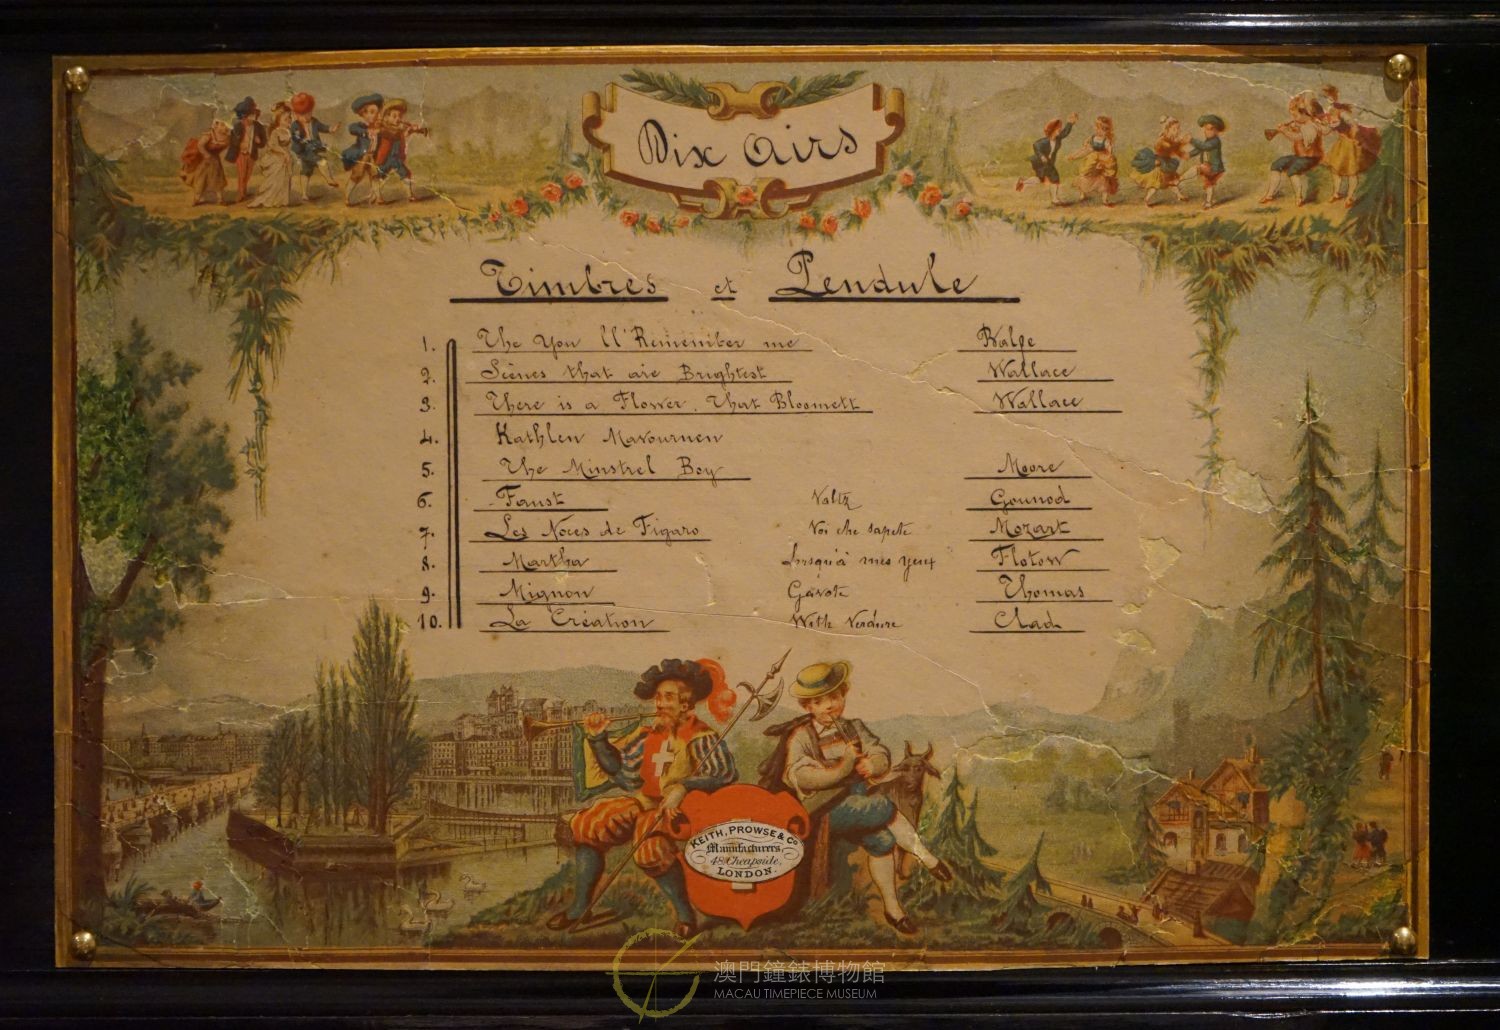 Dix Airs
Timbres et Pendule
1. The You ll'Remember me Balfe
2. Scènes that are Brightest Wallace
3. There is a Flower. That Bloomett Wallace
4. Kathlen Mavournen
5. The Minstrel Boy Moore
6. Faust Valtz Gounod
7. Les Noces de Figaro Voi che sapete Mozart
8. Martha Jusqu'à mes yeux Flotow
9. Mignon Gavote Thomas
10. La Création With Verdure Clad
KEITH, PROWSE & Co
Manufacturers,
48 Cheapside,
LONDON.
澳門鐘錶博物館
MACAU TIMEPIECE MUSEUM